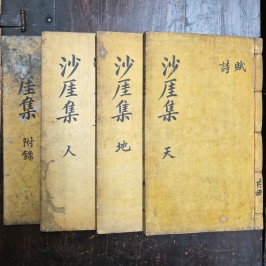 沙厓集 天
詩 賦
沙厓集 地
沙厓集 人
厓集 附錄